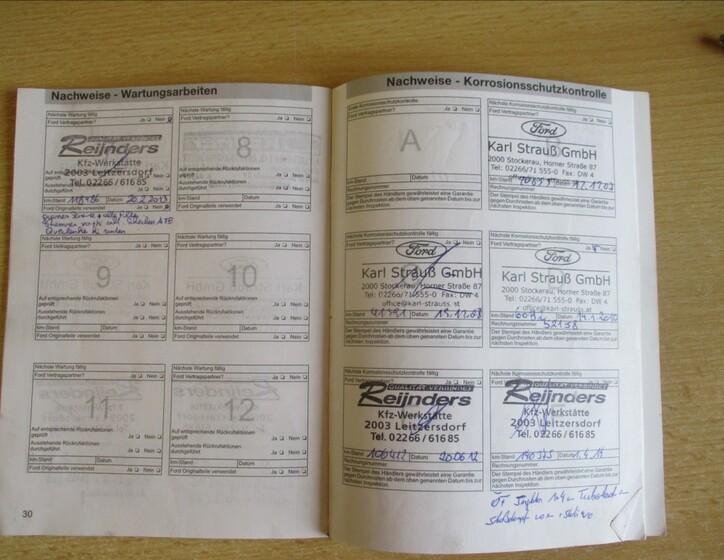 Nachweise - Wartungsarbeiten
Nächste Wartung fällig
Ford Vertragspartner? Ja Nein
QUALITÄT VERBINDET
Reijnders
Kfz-Werkstätte
2003 Leitzersdorf
Tel. 02266 / 616 85
km-Stand Datum 20.2.2013
Ford Originalteile verwendet Ja Nein
Nächste Wartung fällig
Ford Vertragspartner? Ja Nein
8
Auf entsprechende Rückrufaktionen
geprüft Ja Nein
Ausstehende Rückrufaktionen
durchgeführt Ja Nein
km-Stand Datum
Ford Originalteile verwendet Ja Nein
Nächste Wartung fällig
Ford Vertragspartner? Ja Nein
9
Auf entsprechende Rückrufaktionen
geprüft Ja Nein
Ausstehende Rückrufaktionen
durchgeführt Ja Nein
km-Stand Datum
Ford Originalteile verwendet Ja Nein
Nächste Wartung fällig
Ford Vertragspartner? Ja Nein
10
Auf entsprechende Rückrufaktionen
geprüft Ja Nein
Ausstehende Rückrufaktionen
durchgeführt Ja Nein
km-Stand Datum
Ford Originalteile verwendet Ja Nein
Nächste Wartung fällig
Ford Vertragspartner? Ja Nein
11
Auf entsprechende Rückrufaktionen
geprüft Ja Nein
Ausstehende Rückrufaktionen
durchgeführt Ja Nein
km-Stand Datum
Ford Originalteile verwendet Ja Nein
Nächste Wartung fällig
Ford Vertragspartner? Ja Nein
12
Auf entsprechende Rückrufaktionen
geprüft Ja Nein
Ausstehende Rückrufaktionen
durchgeführt Ja Nein
km-Stand Datum
Ford Originalteile verwendet Ja Nein
30
Nachweise - Korrosionsschutzkontrolle
Erste Korrosionsschutzkontrolle
Ford Vertragspartner? Ja Nein
A
km-Stand Datum
Rechnungsnummer
Der Stempel des Händlers gewährleistet eine Garantie
gegen Durchrosten ab dem oben genannten Datum bis zur
nächsten Inspektion.
Nächste Korrosionsschutzkontrolle fällig
Ford
Karl Strauß GmbH
2000 Stockerau, Horner Straße 87
Tel.: 02266/71 555-0 Fax: DW 4
km-Stand
Rechnungsnummer
Der Stempel des Händlers gewährleistet eine Garantie
gegen Durchrosten ab dem oben genannten Datum bis zur
nächsten Inspektion.
Nächste Korrosionsschutzkontrolle fällig
Ford Vertragspartner?
Ford
Karl Strauß GmbH
2000 Stockerau, Horner Straße 87
Tel.: 02266/71 555-0 Fax: DW 4
office@karl-strauss.at
km-Stand Datum
Rechnungsnummer
Der Stempel des Händlers gewährleistet eine Garantie
gegen Durchrosten ab dem oben genannten Datum bis zur
nächsten Inspektion.
Nächste Korrosionsschutzkontrolle fällig
Ford Vertragspartner? Ja Nein
Ford
Karl Strauß GmbH
2000 Stockerau, Horner Straße 87
Tel.: 02266/71 555-0 Fax: DW 4
office@karl-strauss.at
km-Stand Datum
Rechnungsnummer 52138
Der Stempel des Händlers gewährleistet eine Garantie
gegen Durchrosten ab dem oben genannten Datum bis zur
nächsten Inspektion.
Nächste Korrosionsschutzkontrolle fällig
QUALITÄT VERBINDET
Reijnders
Kfz-Werkstätte
2003 Leitzersdorf
Tel. 02266 / 616 85
km-Stand 106412 Datum 20.06.12
Rechnungsnummer
Der Stempel des Händlers gewährleistet eine Garantie
gegen Durchrosten ab dem oben genannten Datum bis zur
nächsten Inspektion.
Nächste Korrosionsschutzkontrolle fällig
QUALITÄT VERBINDET
Reijnders
Kfz-Werkstätte
2003 Leitzersdorf
Tel. 02266 / 616 85
km-Stand Datum
Rechnungsnummer
Der Stempel des Händlers gewährleistet eine Garantie
gegen Durchrosten ab dem oben genannten Datum bis zur
nächsten Inspektion.